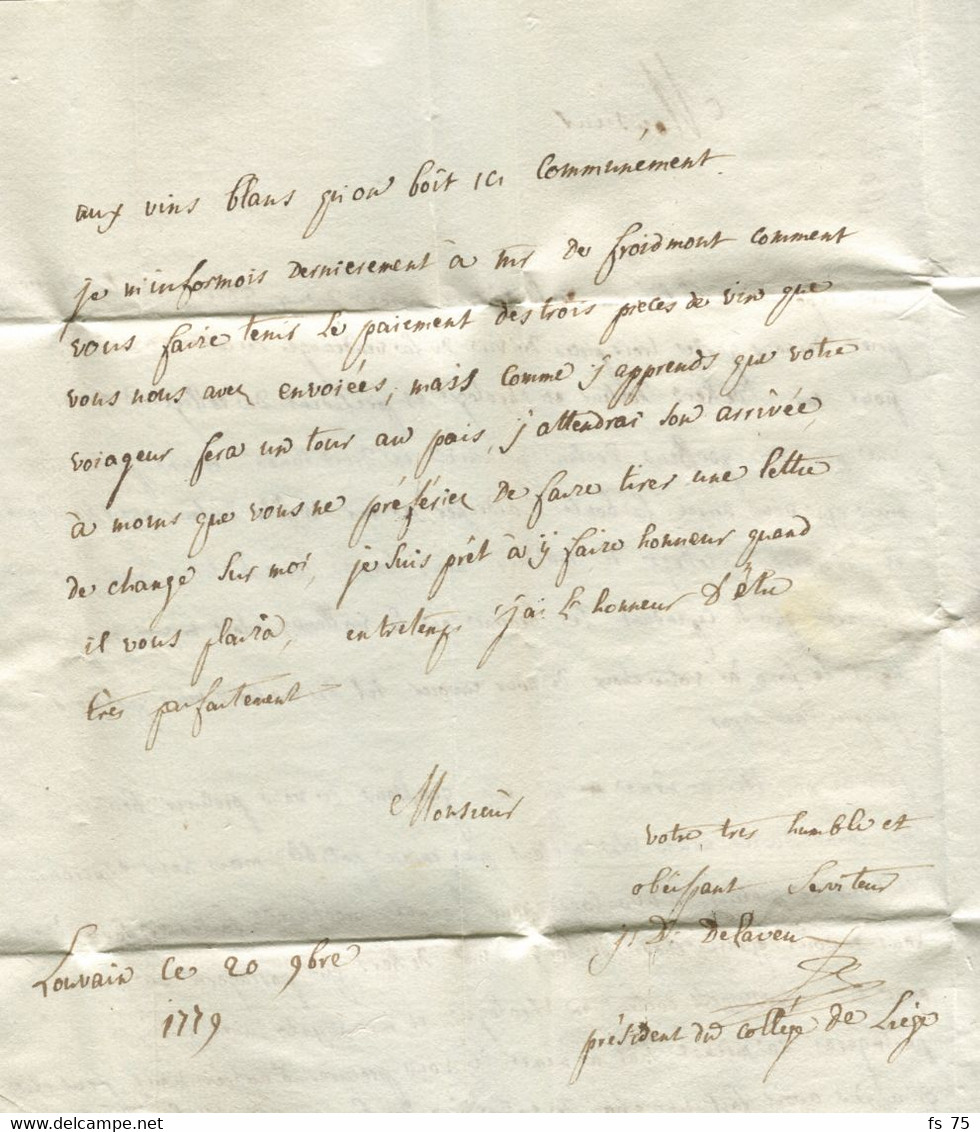 aux vins blans qu'on boit ici communément.
je m'informois dernierement à mr de froidmont comment
vous faire tenir le paiement des trois pieces de vin que
vous nous avez envoiées, mais comme j'apprends que votre
voiageur fera un tour au pais, j'attendrai son arrivée,
à moins que vous ne préfériez de faire tirer une lettre
de change sur moi, je suis prêt à y faire honneur quand
il vous plaira, entretemps j'ai l'honneur d'être
très parfaitement
Monsieur
votre très humble et
obéissant serviteur
j: D: Delaveu
Louvain ce 20 9bre
1779
président du collége de Liége
fs 75